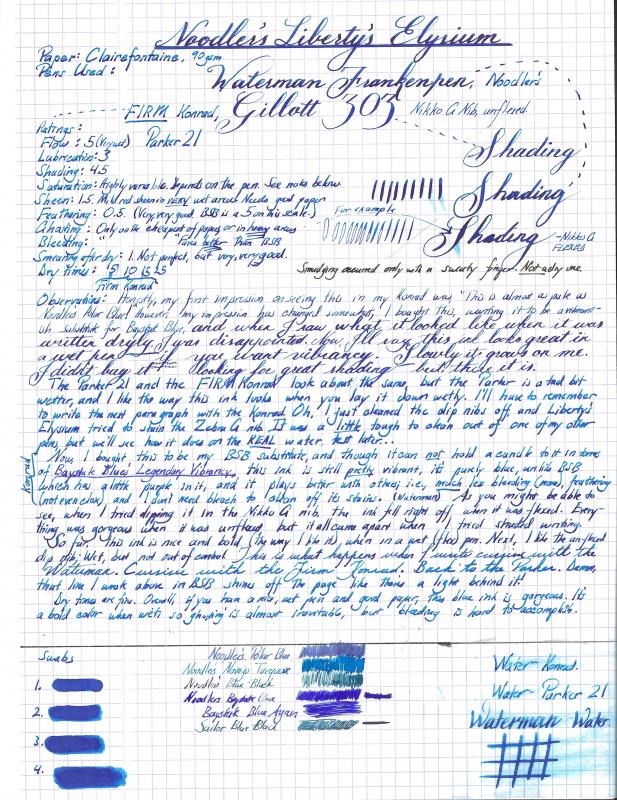 Noodler's Liberty's Elysium
Paper: Clairefontaine, 90gsm
Pens Used:
Waterman Frankenpen, Noodler's
FIRM Konrad, Gillott 303 Nikko G Nib, unflexed.
Ratings:
Flow: 5 (Very wet) Parker 21
Lubrication: 3
Shading: 4.5
Shading
Saturation: Highly variable. Depends on the pen. See notes below.
Sheen: 1.5. Mild red sheen in VERY wet areas. Needs good paper
Shading
Feathering: 0.5. (Very, very good. BSB is a 5 on this scale.)
For example
Ghosting: Only on the cheapest of papers or in heavy areas
Shading - Nikko G FLEXED
Bleeding: " " Fares better than BSB
Smearing after dry: 1. Not perfect, but very, very good.
Smudging occured only with a sweaty finger. Not a dry one.
Dry times: 5 10 15 25
Firm Konrad
Observations: Honestly, my first impression on seeing this in my Konrad was, "This is almost as pale as
Noodler's Polar Blue! However my impression has changed somewhat. I bought this, wanting it to be a vibrant-
ish substitute for Baystate Blue, and when I saw what it looked like when it was
written dryly, I was disappointed. Now, I'll say this ink looks great in
a wet pen if you want vibrancy. Slowly it grows on me.
I didn't buy it looking for great shading but there it is.
The Parker 21 and the FIRM Konrad look about the same, but the Parker is a tad bit
wetter, and I like the way this ink looks when you lay it down wetly. I'll have to remember
to write the next paragraph with the Konrad. Oh, I just cleaned the dip nibs off and Liberty's
Elysium tried to stain the Zebra G nib. It was a little tough to clean out of one of my other
pens but we'll see how it does on the REAL water test later...
Konrad
Now, I bought this to be my BSB substitute, and though it can not hold a candle to it in terms
of Baystate Blue's Legendary Vibrancy, this ink is still pretty vibrant, it's purely blue, unlike BSB
which has a little purple in it, and it plays better with others; i.e., much less bleeding (none), feathering
(not even close), and I don't need bleach to clean off its stains. (Waterman) As you might be able to
see, when I tried dipping it in the Nikko G nib, the ink fell right off when it was flexed. Every-
thing was gorgeous when it was unflexed, but it all came apart when I tried shaded writing.
So far, this ink is nice and bold (the way I like it), when in a wet (flex) pen. Next, I like the un-flexed
dip nib; Wet, but not out of control. This is what happens when I write cursive with the
Waterman. Cursive with the Firm Konrad. Back to the Parker. Damn,
that line I wrote above in BSB shines off the page like there's a light behind it!
Dry times are fine. Overall, if you have a nice, wet pen and good paper, this blue ink is gorgeous. It's
a bold color when wet; so ghosting is almost inevitable, but bleeding is hard to accomplish.
Swabs
1.
2.
3.
4.
Noodler's Polar Blue
Noodlers Navajo Turquoise
Noodlers Blue-Black
Noodlers Baystate Blue
Baystate Blue Again
Sailor Blue Black
Water Konrad.
Water Parker 21
Waterman Water